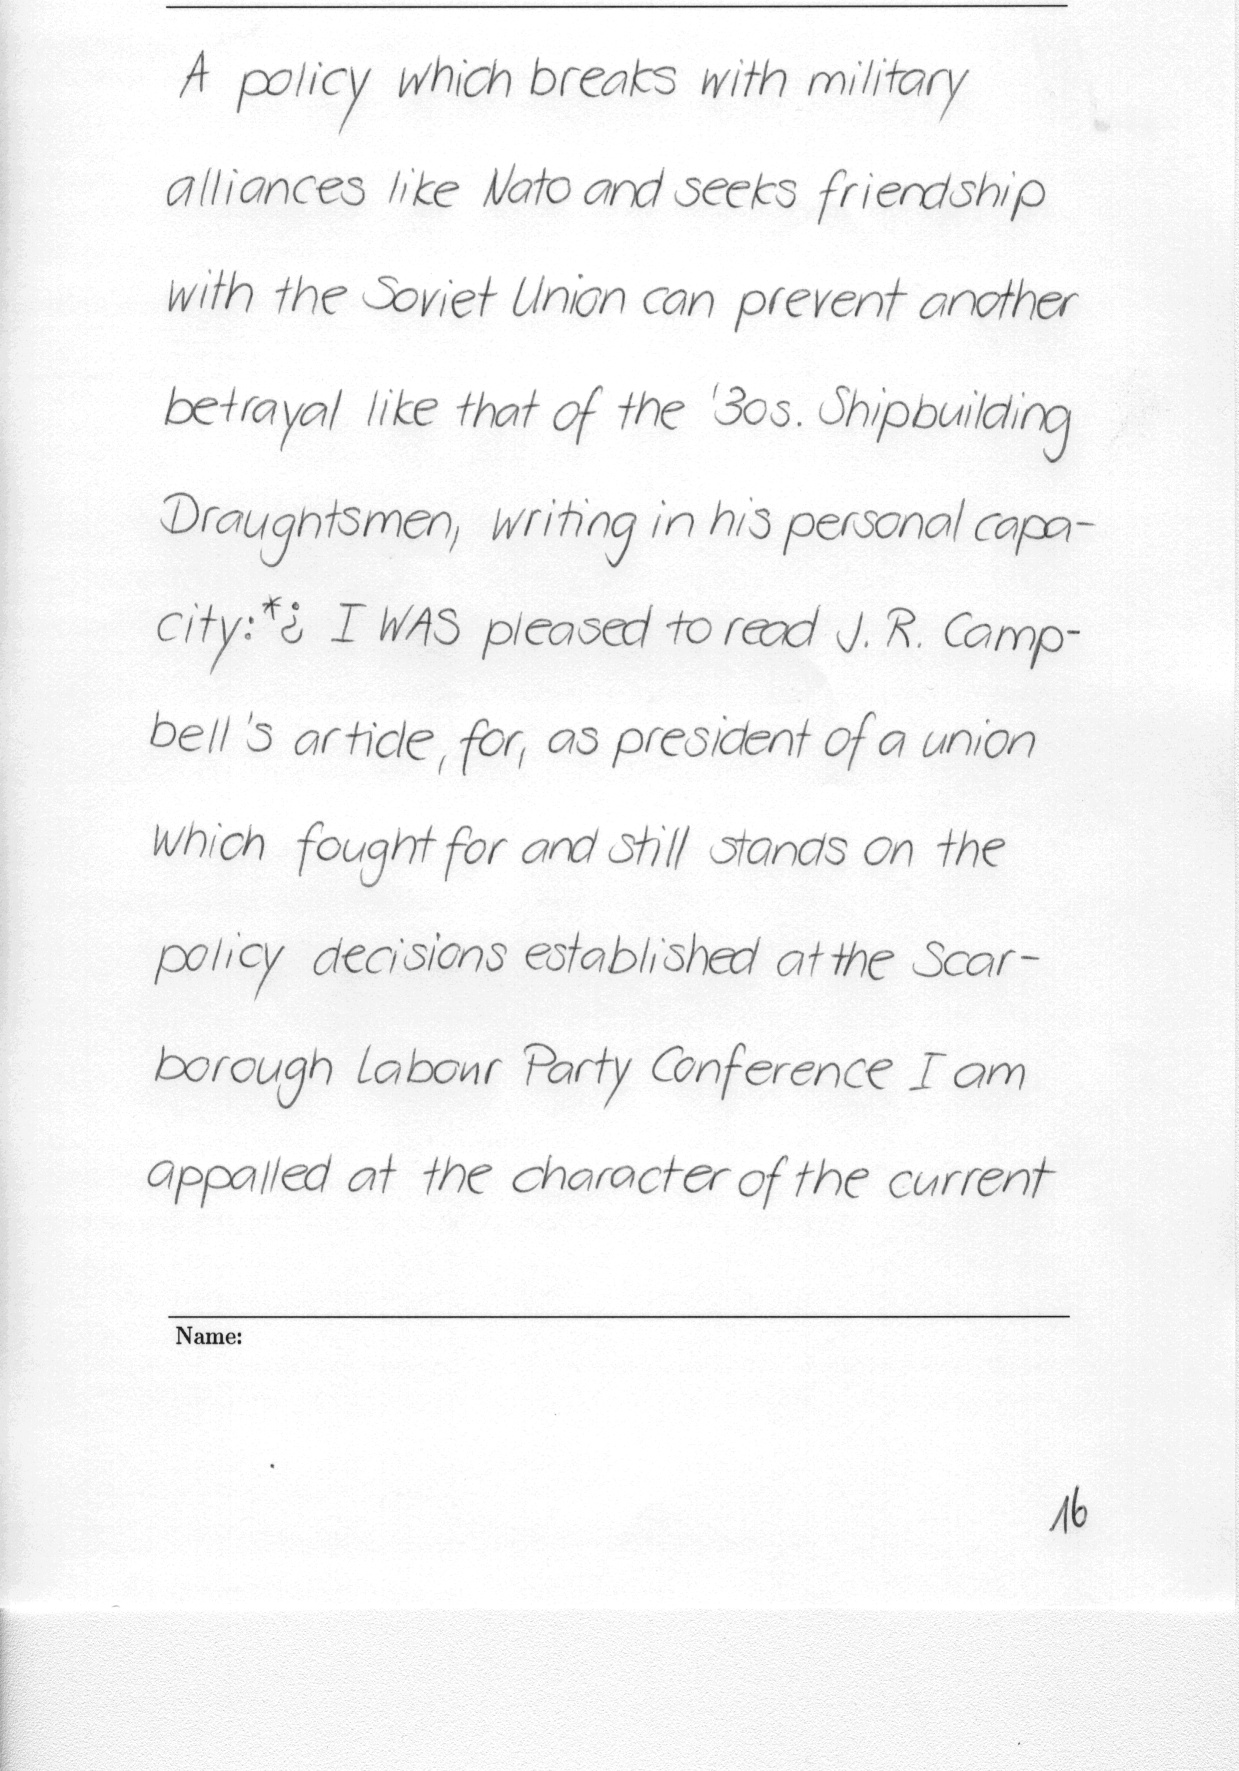 A policy which breaks with military
alliances like Nato and seeks friendship
with the Soviet Union can prevent another
betrayal like that of the '30s. Shipbuilding
Draughtsmen, writing in his personal capa-
city:*¿ I WAS pleased to read J. R. Camp-
bell's article, for, as president of a union
which fought for and still stands on the
policy decisions established at the Scar-
borough Labour Party Conference I am
appalled at the character of the current
Name:
16